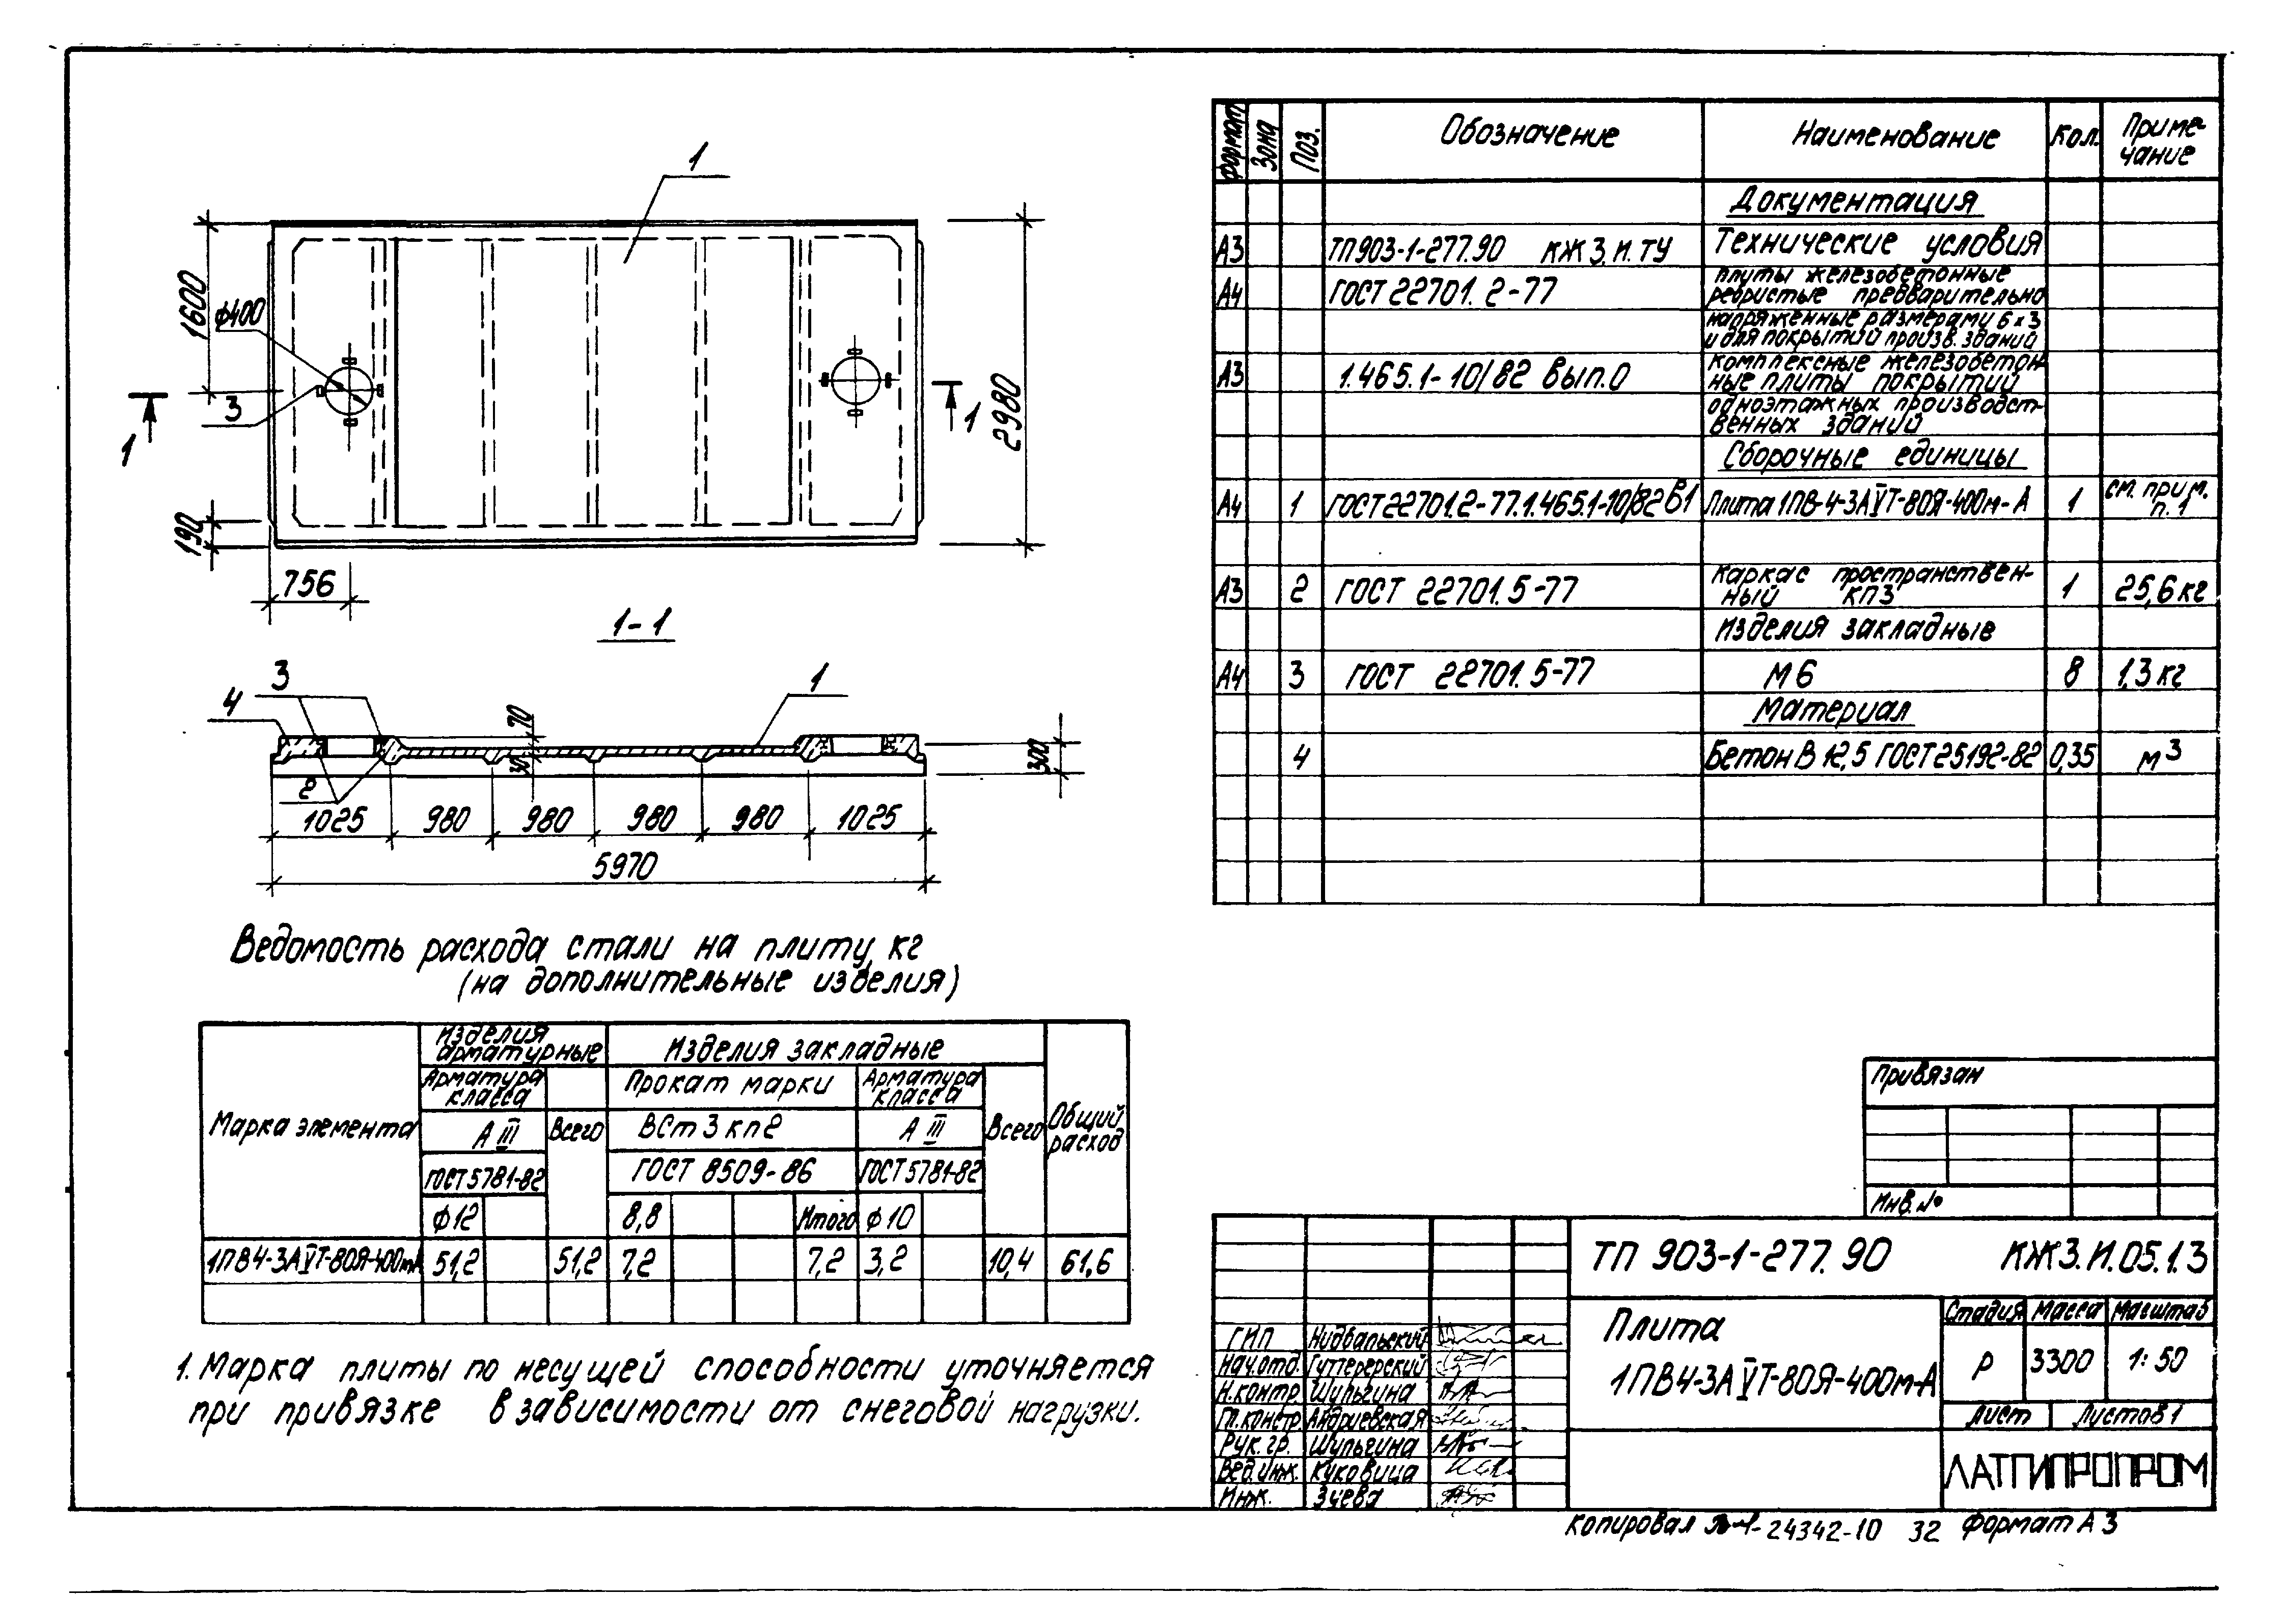 1
1600
ф400
3
1
1
190
2980
756
1-1
3
4
1
70
30
300
2
1025 980 980 980 980 1025
5970
Ведомость расхода стали на плиту, кг
(на дополнительные изделия)
Марка элемента
Изделия арматурные
Изделия закладные
Общий расход
Арматура класса
Всего
Прокат марки
Арматура класса
Всего
А III
ВСт 3 кп2
А III
ГОСТ 5781-82
ГОСТ 8509-86
ГОСТ 5781-82
ф12
8,8
Итого
ф10
1ПВ4-3АVТ-80Я-400м-А 51,2 51,2 7,2 7,2 3,2 10,4 61,6
1. Марка плиты по несущей способности уточняется
при привязке в зависимости от снеговой нагрузки.
Формат Зона Поз. Обозначение Наименование Кол. Приме-
чание
Документация
А3 ТП903-1-277.90 КЖ3.И.ТУ Технические условия
А4 ГОСТ 22701.2-77 Плиты железобетонные
ребристые предварительно
напряженные размерами 6х3
и для покрытий произв. зданий
А3 1.465.1-10/82 Вып.0 Комплексные железобетон-
ные плиты покрытий
одноэтажных производст-
венных зданий
Сборочные единицы
А4 1 ГОСТ22701.2-77.1.465.1-10/82 В1 Плита 1ПВ-4-3АVТ-80Я-400м-А 1 см. прим.
п.1
А3 2 ГОСТ 22701.5-77 Каркас пространствен-
ный КП3 1 25,6 кг
Изделия закладные
А4 3 ГОСТ 22701.5-77 М6 8 1,3 кг
Материал
4 Бетон В 12,5 ГОСТ 25192-82 0,35 м3
Привязан
Инв.№
ТП 903-1-277.90 КЖ3.И.05.1.3
Плита
1ПВ4-3АVТ-80Я-400м-А
Стадия Масса Масштаб
Р 3300 1:50
Лист Листов 1
ЛАТГИПРОПРОМ
ГИП Нидбальский
Нач.отд. Гуттерерский
Н.контр. Шульгина
Гл.констр. Андриевская
Рук.гр. Шульгина
Вед.инж. Куковица
Инж. Зуева
Копировал 24342-10 32 Формат А3